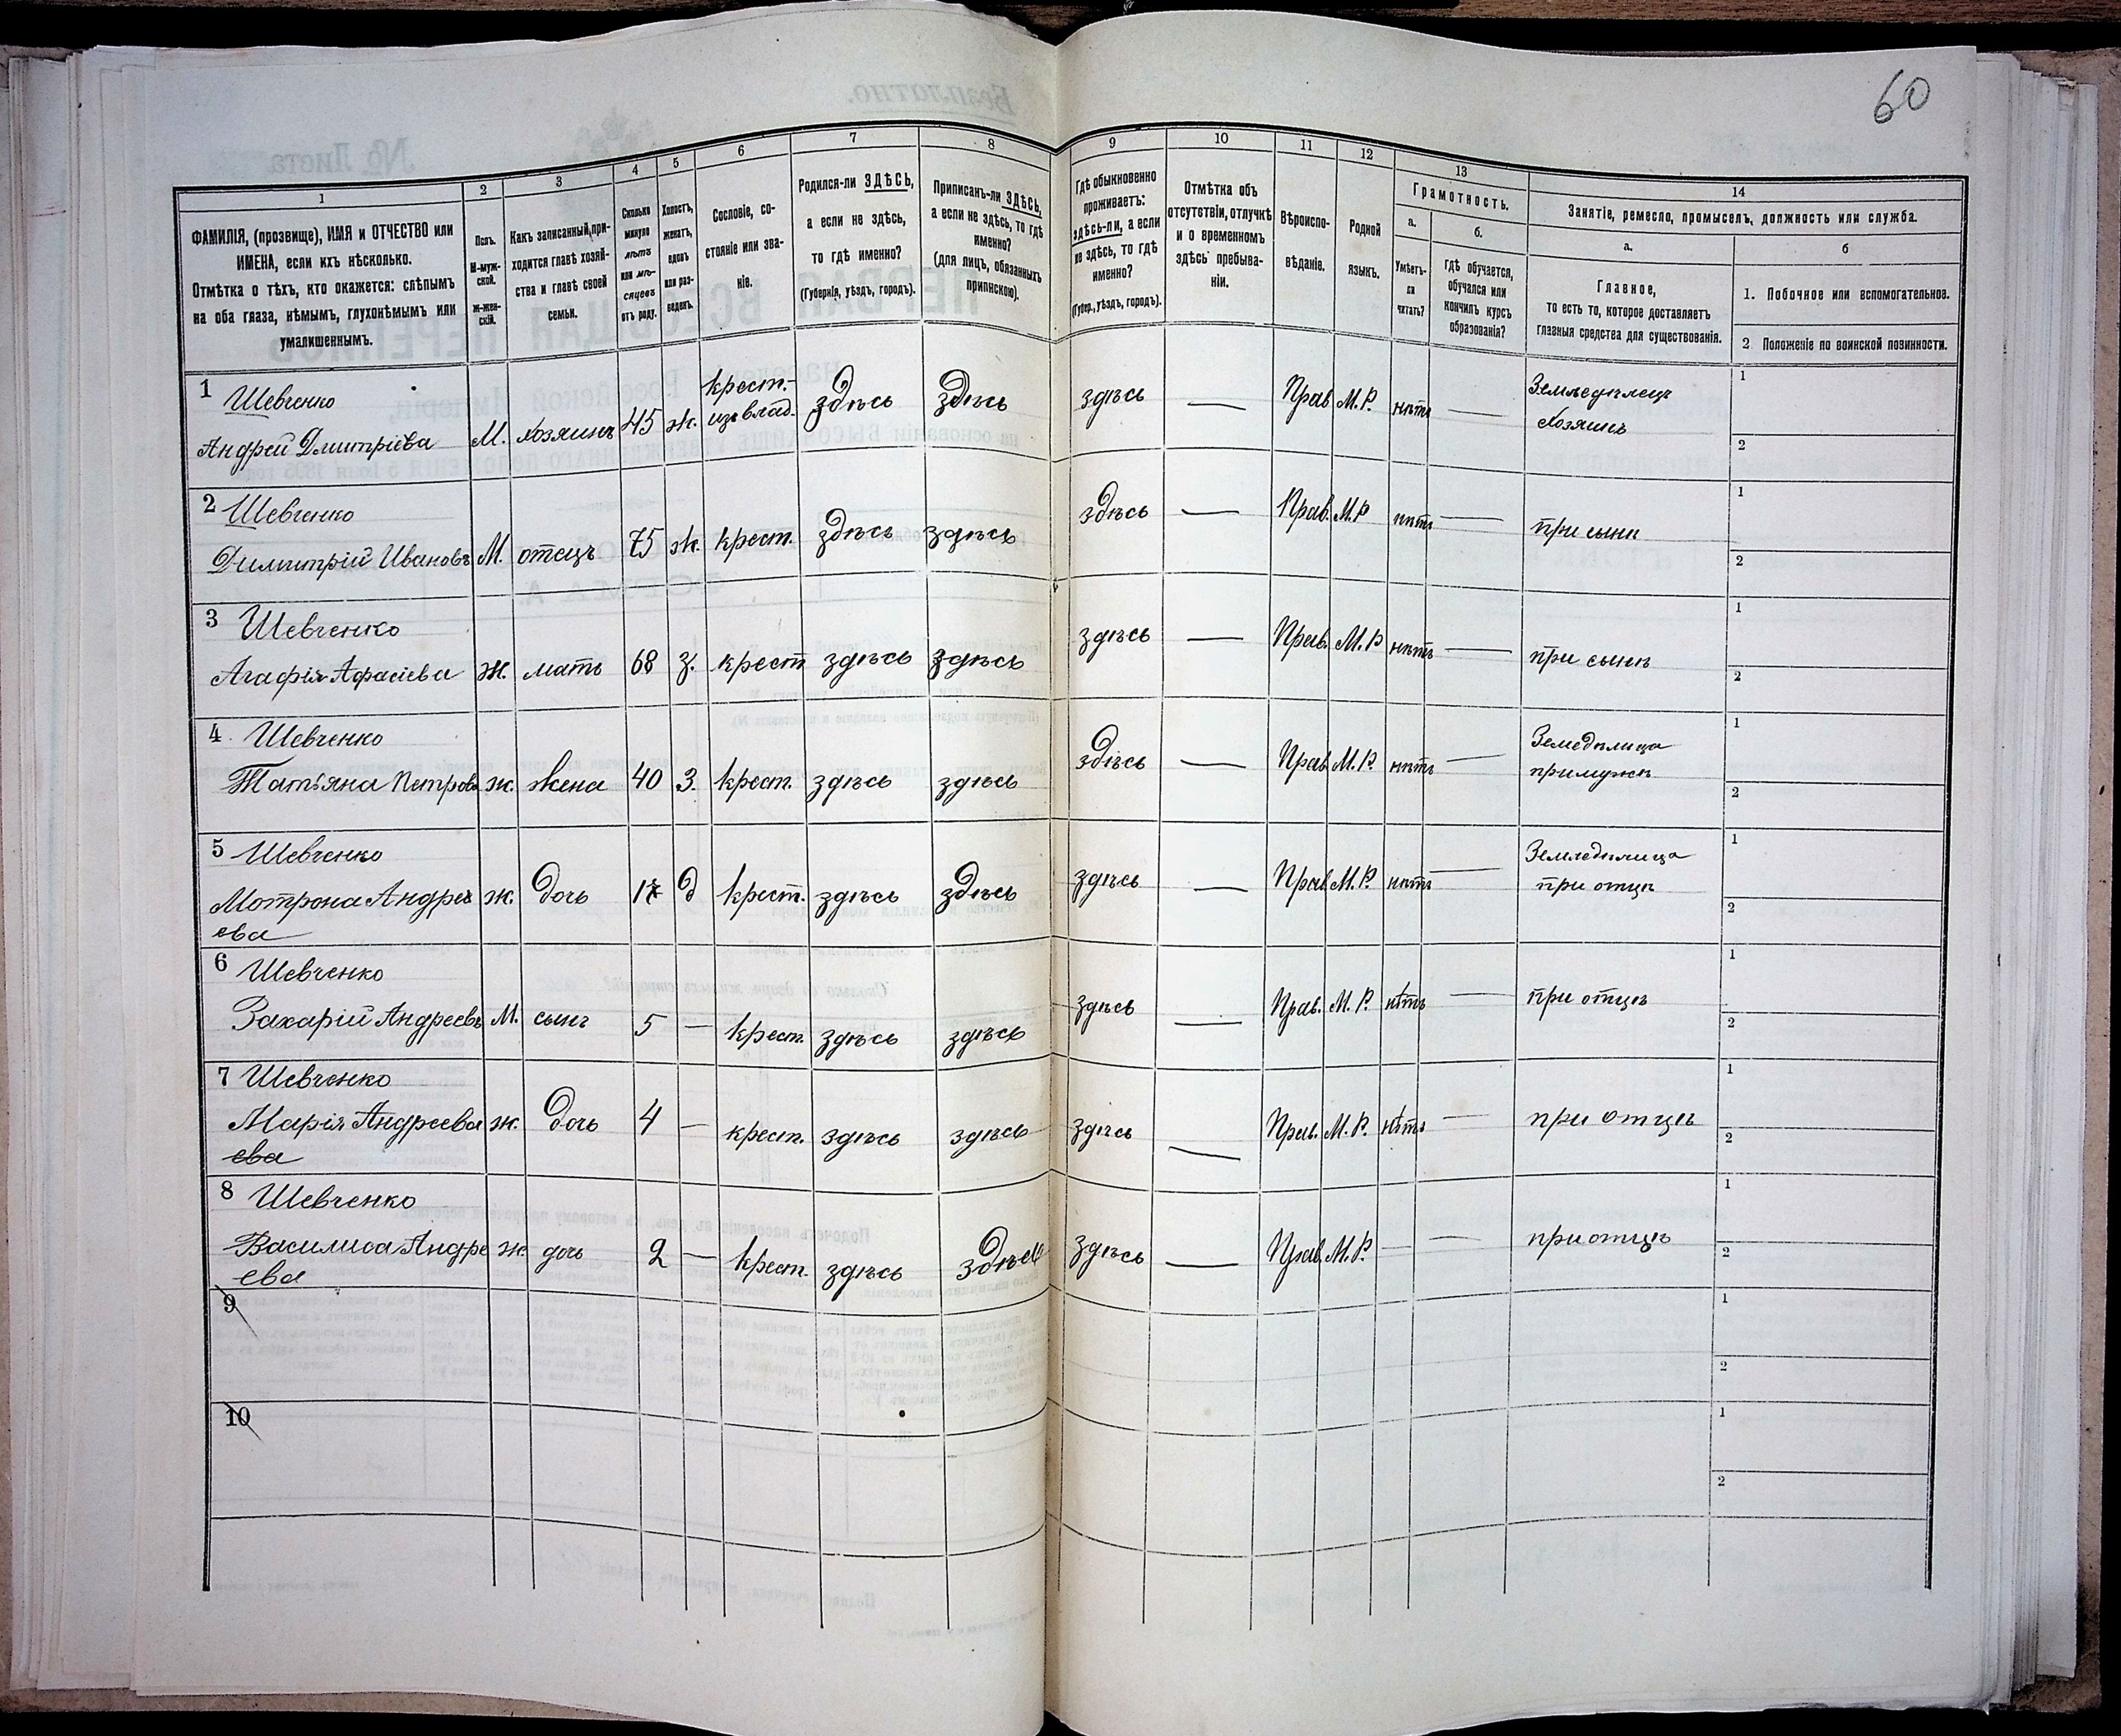 60
1
2
3
4
5
6
7
8
9
10
11
12
13
14
ФАМИЛІЯ, (прозвище), ИМЯ и ОТЧЕСТВО или
ИМЕНА, если ихъ нѣсколько.
Отмѣтка о тѣхъ, кто окажется: слѣпымъ
на оба глаза, нѣмымъ, глухонѣмымъ или
умалишеннымъ.
Полъ.
М-муж-
ской.
Ж-жен-
скій.
Какъ записанный при-
ходится главѣ хозяй-
ства и главѣ своей
семьи.
Сколько
минуло
лѣтъ
или мѣ-
сяцевъ
отъ роду.
Холостъ,
женатъ,
вдовъ
или раз-
веденъ.
Сословіе, со-
стояніе или зва-
ніе.
Родился-ли ЗДѢСЬ,
а если не здѣсь,
то гдѣ именно?
(Губернія, уѣздъ, городъ).
Приписанъ-ли ЗДѢСЬ,
а если не здѣсь, то гдѣ
именно?
(для лицъ, обязанныхъ
припискою).
Гдѣ обыкновенно
проживаетъ:
здѣсь-ли, а если
не здѣсь, то гдѣ
именно?
(Губер., уѣздъ, городъ).
Отмѣтка объ
отсутствіи, отлучкѣ
и о временномъ
здѣсь пребыва-
ніи.
Вѣроиспо-
вѣданіе.
Родной
языкъ.
Грамотность.
а.
Умѣетъ-
ли
читать?
б.
Гдѣ обучается,
обучался или
кончилъ курсъ
образованія?
Занятіе, ремесло, промыселъ, должность или служба.
а.
Главное,
то есть то, которое доставляетъ
главныя средства для существованія.
б
1. Побочное или вспомогательное.
2 Положеніе по воинской повинности.
1 Шевченко крест.- здѣсь здѣсь здѣсь — Прав М.Р. нѣтъ — Земледѣлецъ 1
Андрей Дмитріева М. хозяинъ 45 ж. изъ влад. хозяинъ 2
2 Шевченко здѣсь — Прав. М.Р нѣтъ — 1
Димитрій Ивановъ М. отецъ 75 ж. крест. здѣсь здѣсь при сынѣ 2
3 Шевченко здѣсь — Прав. М.Р нѣтъ — 1
Агафія ж. мать 68 з. крест здѣсь здѣсь при сынѣ 2
4 Шевченко здѣсь — Прав М.Р. нѣтъ — Земедѣлица 1
Татьяна Петрова ж. жена 40 З. крест. здѣсь здѣсь при мужѣ 2
5 Шевченко здѣсь — Прав М.Р. нѣтъ — Земледѣлица 1
Мотрона Андрее ж. дочь д крест. здѣсь здѣсь при отцѣ 2
ева
6 Шевченко здѣсь — Прав. М.Р. нѣтъ — при отцѣ 1
Захарій Андреевъ М. сынъ 5 — крест. здѣсь здѣсь 2
7 Шевченко 1
Марія Андреева ж. дочь 4 — крест. здѣсь здѣсь здѣсь — Прав. М.Р. нѣтъ — при отцѣ 2
ева
8 Шевченко 1
Василиса Андре ж дочь 2 — крест. здѣсь здѣсь здѣсь — Прав. М.Р. — — при отцѣ 2
ева
9 1
2
10 1
2